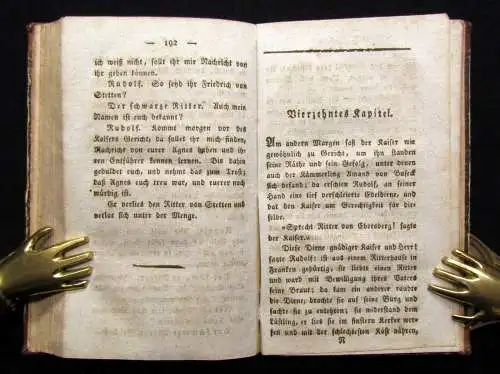 — 192 —
ich weiß nicht, sollt ihr mir Nachricht von
ihr geben können.
Rudolf. So seyd ihr Friedrich von
Stetten?
Der schwarze Ritter. Auch mein
Namen ist euch bekannt?
Rudolf. Kommt morgen vor des
Kaisers Gericht, da sollet ihr mich finden,
Nachricht von eurer Agnes haben und ih-
ren Entführer kennen lernen. Bis dahin
geduldet euch, und nehmt das zum Trost;
daß Agnes euch treu war, und eurer noch
würdig ist.
Er verließ den Ritter von Stetten und
verlos sich unter der Menge.
Vierzehntes Kapitel.
Am andern Morgen saß der Kaiser wie
gewöhnlich zu Gericht, um ihn standen
seine Räthe und sein Gefolg, unter denen
auch der Kämmerling Amand von Buseck
sich befand; da erschien Rudolf, an seiner
Hand eine tief verschleierte Edeldirne, und
bat den Kaiser um Gerechtigkeit für die-
selbe.
»Sprecht Ritter von Ehrenberg! sagte
der Kaiser.«
Diese Dirne gnädiger Kaiser und Herr!
sagte Rudolf: ist aus einem Ritterhause in
Franken gebürtig; sie liebt einen Ritter
und ward mit Bewilligung ihres Vaters
seine Braut; da kam ein anderer raubte
die Dirne, brachte sie auf seine Burg und
suchte sie zu entehren; sie widerstand dem
Lüstling, er lies sie im finstern Kerker wer-
fen und mit der schlechtesten Kost nähren,
N